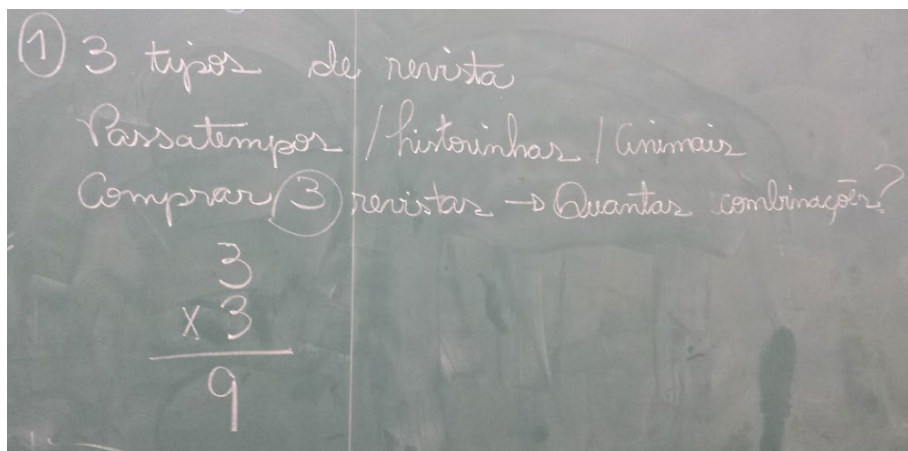 ① 3 tipos de revista
Passatempos / historinhas / Animais
Comprar ③ revistas → Quantas combinações?
3
x 3
9